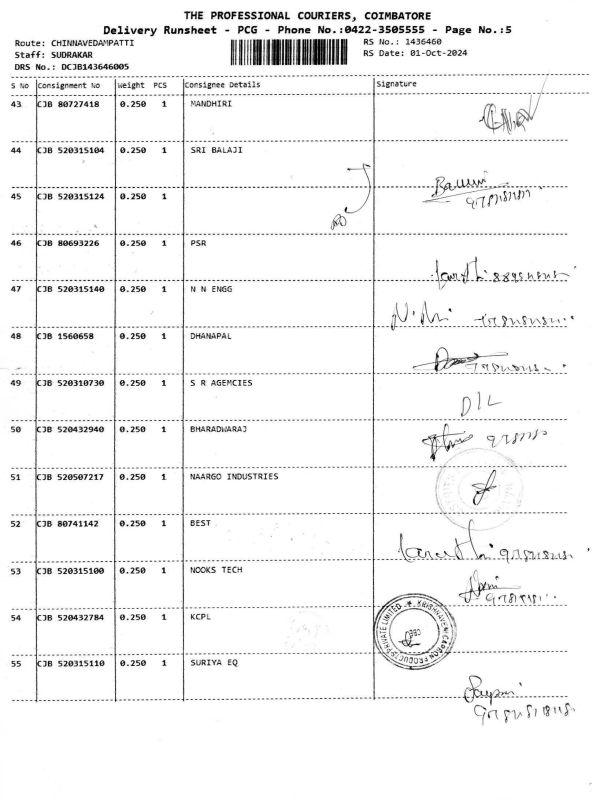 THE PROFESSIONAL COURIERS, COIMBATORE
Delivery Runsheet - PCG - Phone No.:0422-3505555 - Page No.:5
Route: CHINNAVEDAMPATTI
RS No.: 1436460
Staff: SUDRAKAR
RS Date: 01-Oct-2024
DRS No.: DCJB143646005
S No Consignment No Weight PCS Consignee Details Signature
43 CJB 80727418 0.250 1 MANDHIRI
44 CJB 520315104 0.250 1 SRI BALAJI
45 CJB 520315124 0.250 1
46 CJB 80693226 0.250 1 PSR
47 CJB 520315140 0.250 1 N N ENGG
48 CJB 1560658 0.250 1 DHANAPAL
49 CJB 520310730 0.250 1 S R AGEMCIES
D/L
50 CJB 520432940 0.250 1 BHARADWARAJ
51 CJB 520507217 0.250 1 NAARGO INDUSTRIES
52 CJB 80741142 0.250 1 BEST
53 CJB 520315100 0.250 1 NOOKS TECH
54 CJB 520432784 0.250 1 KCPL
KRISHNAVENI CARBON PRODUCTS PRIVATE LIMITED
CBE
55 CJB 520315110 0.250 1 SURIYA EQ